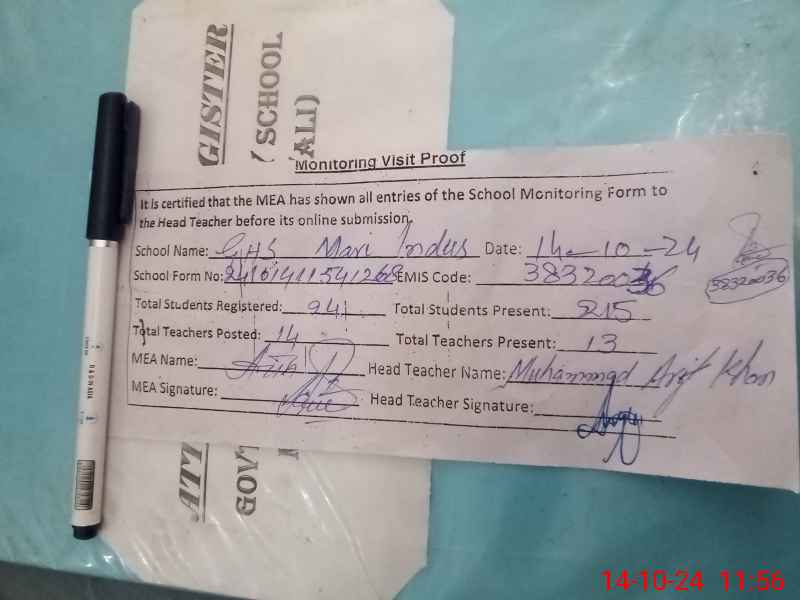 GISTER
( SCHOOL
ALI)
Monitoring Visit Proof
It is certified that the MEA has shown all entries of the School Monitoring Form to
the Head Teacher before its online submission.
School Name: GHS Mari Indus Date: 14-10-24
School Form No: EMIS Code: 38320036
38320036
Total Students Registered: 241 Total Students Present: 215
Total Teachers Posted: 14 Total Teachers Present: 13
MEA Name: Head Teacher Name: Muhammad Khan
MEA Signature: Head Teacher Signature:
ATT
GOV
14-10-24 11:56